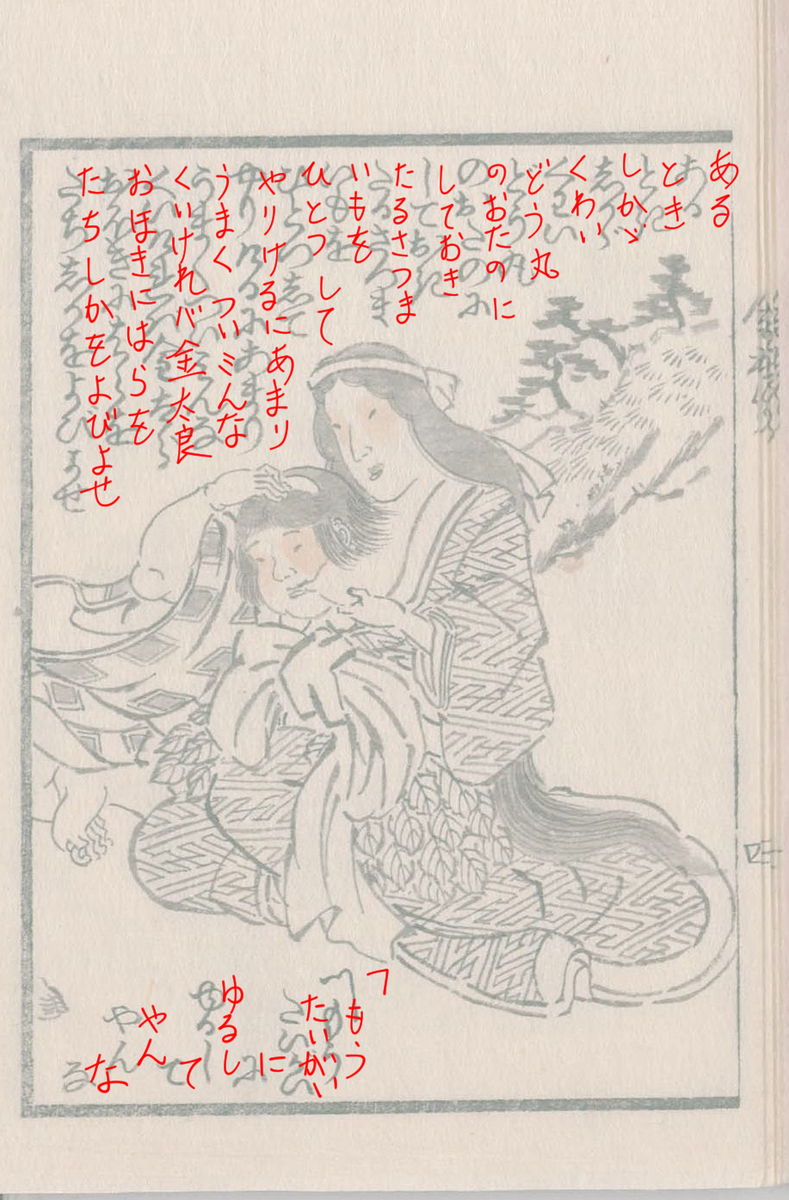 ある
とき
しかゞ
くわい
どう丸
のおたのに
しておき
たるさつま
いもを
ひとつして
やりけるにあまり
うまくついミんな
くいけれバ金太良
おほきにはらを
たちしかをよびよせ
「もう
たいがい
に
ゆるし
て
やん
な